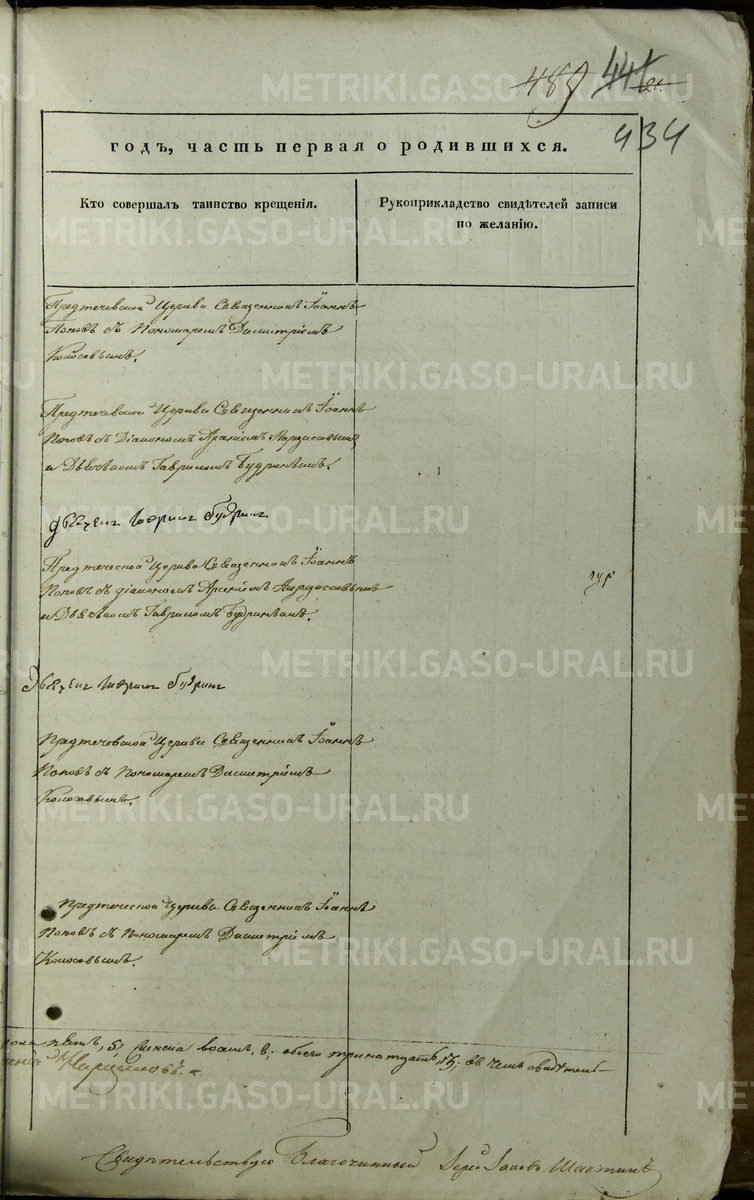 489 441
434
годъ, часть первая о родившихся.
Кто совершалъ таинство крещенія.
Рукоприкладство свидѣтелей записи
по желанію.
Предтечевской Церкви Священникъ Іоаннъ
Поповъ съ Пономаремъ Димитріемъ
Колосовымъ.
Предтечевской Церкви Священникъ Іоаннъ
Поповъ съ Діакономъ
и Дьячкомъ Гавриломъ Будринымъ.
Гаврил Будрин
Предтеческой Церкви Священникъ Іоаннъ
Поповъ съ діакономъ Арсеніемъ
и Дьячкомъ Гавриломъ Будринымъ.
Гаврил Будрин
Предтечевской Церкви Священникъ Іоаннъ
Поповъ съ Пономаремъ Димитріемъ
Колосовымъ.
Предтеческой Церкви Священникъ Іоаннъ
Поповъ съ Пономаремъ Димитріемъ
Колосовымъ.
пола пять, 5; женска обоего тринатцать, 13; въ чемъ
Свидѣтельствую Благочинный Іерей Іаковъ
METRIKI.GASO-URAL.RU